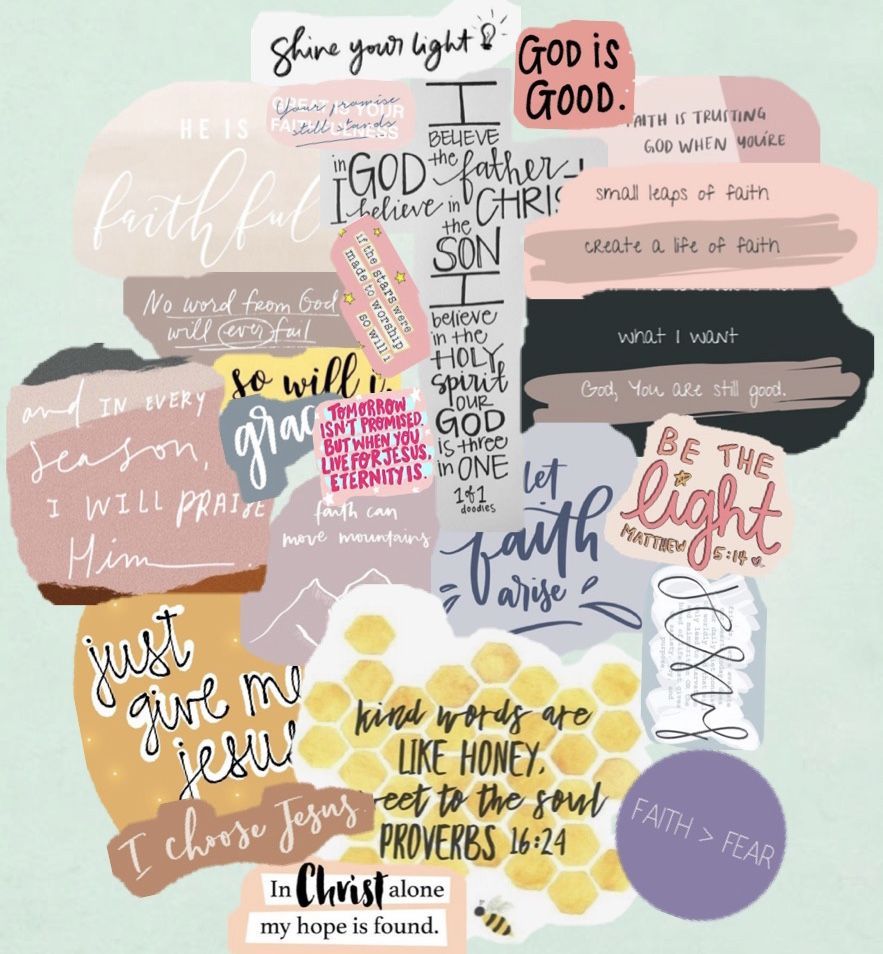 Shine your light
GOD IS
GOOD.
GREAT IS YOUR
FAITHFULNESS
Your promise
still stands
HE IS
faithful
I
BELIEVE
in GOD the father +
I believe in CHRIS
the
SON
I
believe
in the
HOLY
spirit
OUR
GOD
is three
in ONE
1 of 1
doodles
FAITH IS TRUSTING
GOD WHEN YOU'RE
small leaps of faith
create a life of faith
what I want
God, You are still good.
if the stars were
made to worship
so will i
No word from God
will ever fail
so will i.
grac
TOMORROW
ISN'T PROMISED,
BUT WHEN YOU
LIVE FOR JESUS,
ETERNITY IS.
and IN EVERY
season,
I WILL PRAISE
Him
faith can
move mountains
let
faith
arise
BE THE
light
MATTHEW 5:14
Jesus
just
give me
jesus
kind words are
LIKE HONEY,
eet to the soul
PROVERBS 16:24
I choose Jesus.
FAITH > FEAR
In Christ alone
my hope is found.